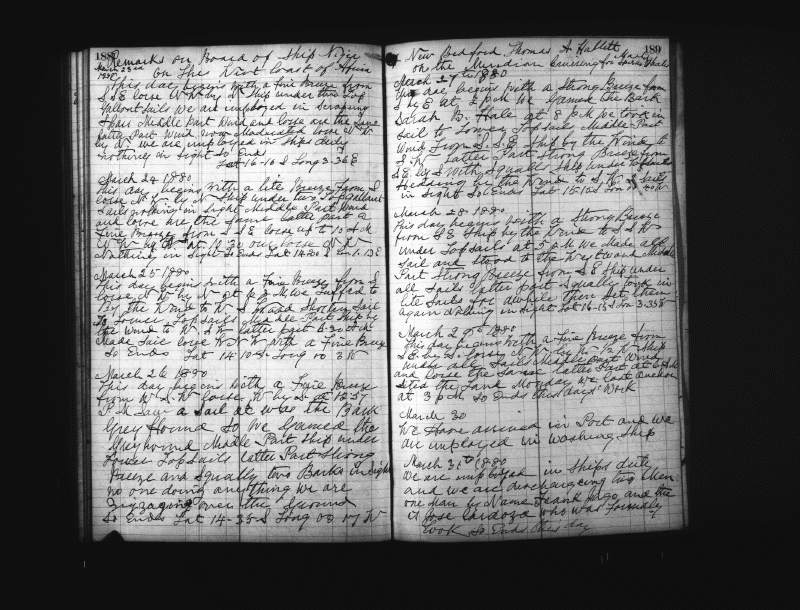 188
Remarks on Board of Ship
March 23rd
1890 on the West Coast of Africa
This day begins with a fine Breeze from
S.E. corse N.W. by N Ship under two Top
Gallant Sails we are imployed in Scraping
Spars Middle Part Wind and corse are the Same
latter Part Wind now Moderated corse N W
by N. we are imployed in Ships duty
nothing in Sight So Ends
Lat 16-10 S Long 3-36 E
March 24 1890
This day begins with a lite Breeze from S
corse N. W. by N Ship under two Topgallant
Sails nothing in Sight Middle Part Wind
and corse are the Same latter part a
Fine Breeze from S E corse up to 10 A.M
N W by W at 10.30 our corse N W
Nothing in Sight So Ends Lat 14-20 S
March 25 1890
This day begins with a Fine Breeze from S
corse N W by N at P.M. We luffed to
by the Wind to W. S. W and Shorten Sail
to Lower Top Sails Middle Part Ship by
the Wind to W. S. W latter part 6-30 A.M
Made Sail corse W N W with a Fine Breeze
So Ends Lat 14-10 S. Long 00 3 W
March 26 1890
This day begins with a Fine Breeze
from W S. W corse W by S at 12-57
P.M Saw a Sail it was the Bark
Grey Hound So We Gamed the
Greyhound Middle Part Ship under
Lower Top Sails latter Part Strong
Breeze and Squally two Barks in Sight
no one doing anything we are
Zigzaging over the Ground
So Ends Lat 14-35 S Long 00 57 W
189
New Bedford Thomas A Hallett
on the Meridian Cruising for Whales
March 27th 1890
This day begins with a Strong Breeze from
S by E at 2 P.M We Gamed the Bark
Sarah B. Hale at 8 P.M We took in
Sail to Lower Topsails Middle Part
Wind From S. S. E Ship by the Wind to
S. W latter Part Strong Breeze from
S.E. by S with Squalls Ship under
heading by the Wind to S. W
in Sight So Ends Lat 15-10 S
March 28 1890
This day begins with a Strong Breeze
from S.E Ship by the Wind to S. S. W
under Topsails at 5 P.M We Made all
Sail and Stood to the Westward Middle
Part Strong Breeze from S.E Ship under
all Sails latter part Squally took in
lite Sails for awhile then Set them
again nothing in Sight Lat 16-15 S Lon 3-35
March 29th 1890
This day begins with a Fine Breeze from
S.E. by S. Corse N. W. by W. Ship
under all Sail Middle part Wind
and corse the Same latter Part at 6 A.M
Sited the Land Monday we Cast Anchor
at 3 P.M. So Ends this days Work
March 30
We Have arrived in Port and We
are imployed in Washing Ship
March 31st 1890
We are imployed in Ships duty
and we are dischargeing two Men
one Man by Name Frank and the
Jose Cardoza who was formerly
Cook So Ends this day